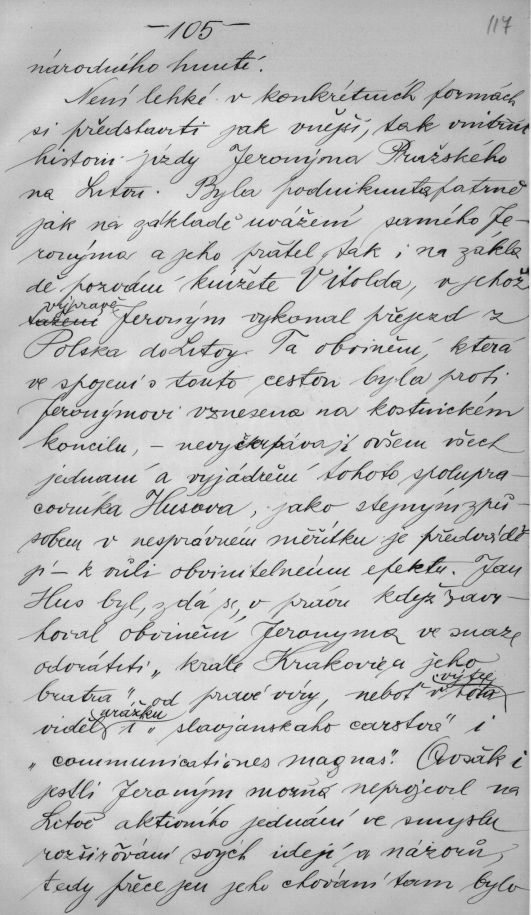 -105-
117
národního hnutí.
Není lehké v konkrétních formách
si představiti jak vnější, tak vnitřní
historii jízdy Jeronýma Pražského
na Litvu. Byla podniknuta patrně
jak na základě uvážení samého Je-
ronýma a jeho přátel, tak i na zákla
dě pozvání knížete Vitolda, v jehož
výpravě
tažení Jeroným vykonal přejezd z
Polska do Litvy. Ta obvinění, která
ve spojení s touto cestou byla proti
Jeronýmovi vznesena na kostnickém
koncilu, - nevyčerpávají ovšem všech
jednání a vyjádření tohoto spolupra-
covníka Husova, jako stejným způ-
sobem v nesprávném měřítku je předvádě
jí - k vůli obvinitelnému efektu. Jan
Hus byl, zdá se, v právu když zavr-
hoval obvinění Jeronyma ve snaze
odvrátiti „krále Krakovie a jeho
bratra" od pravé víry, neboť v
výtce
viděl i
narážku
„slavjanskaho carstva" i
„communicationes magnas". Avšak i
jestli Jeroným možná neprojevil na
Litvě aktivního jednání ve smyslu
rozšiřování svých idejí a názorů,
tedy přece jen jeho chování tam bylo